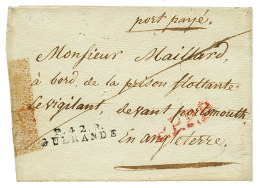 port payé.
Monsieur Maillard,
à bord de la prison flottante
le vigilant, devant portsmouth,
P.42.P.
GUÉRANDE
En angleterre.